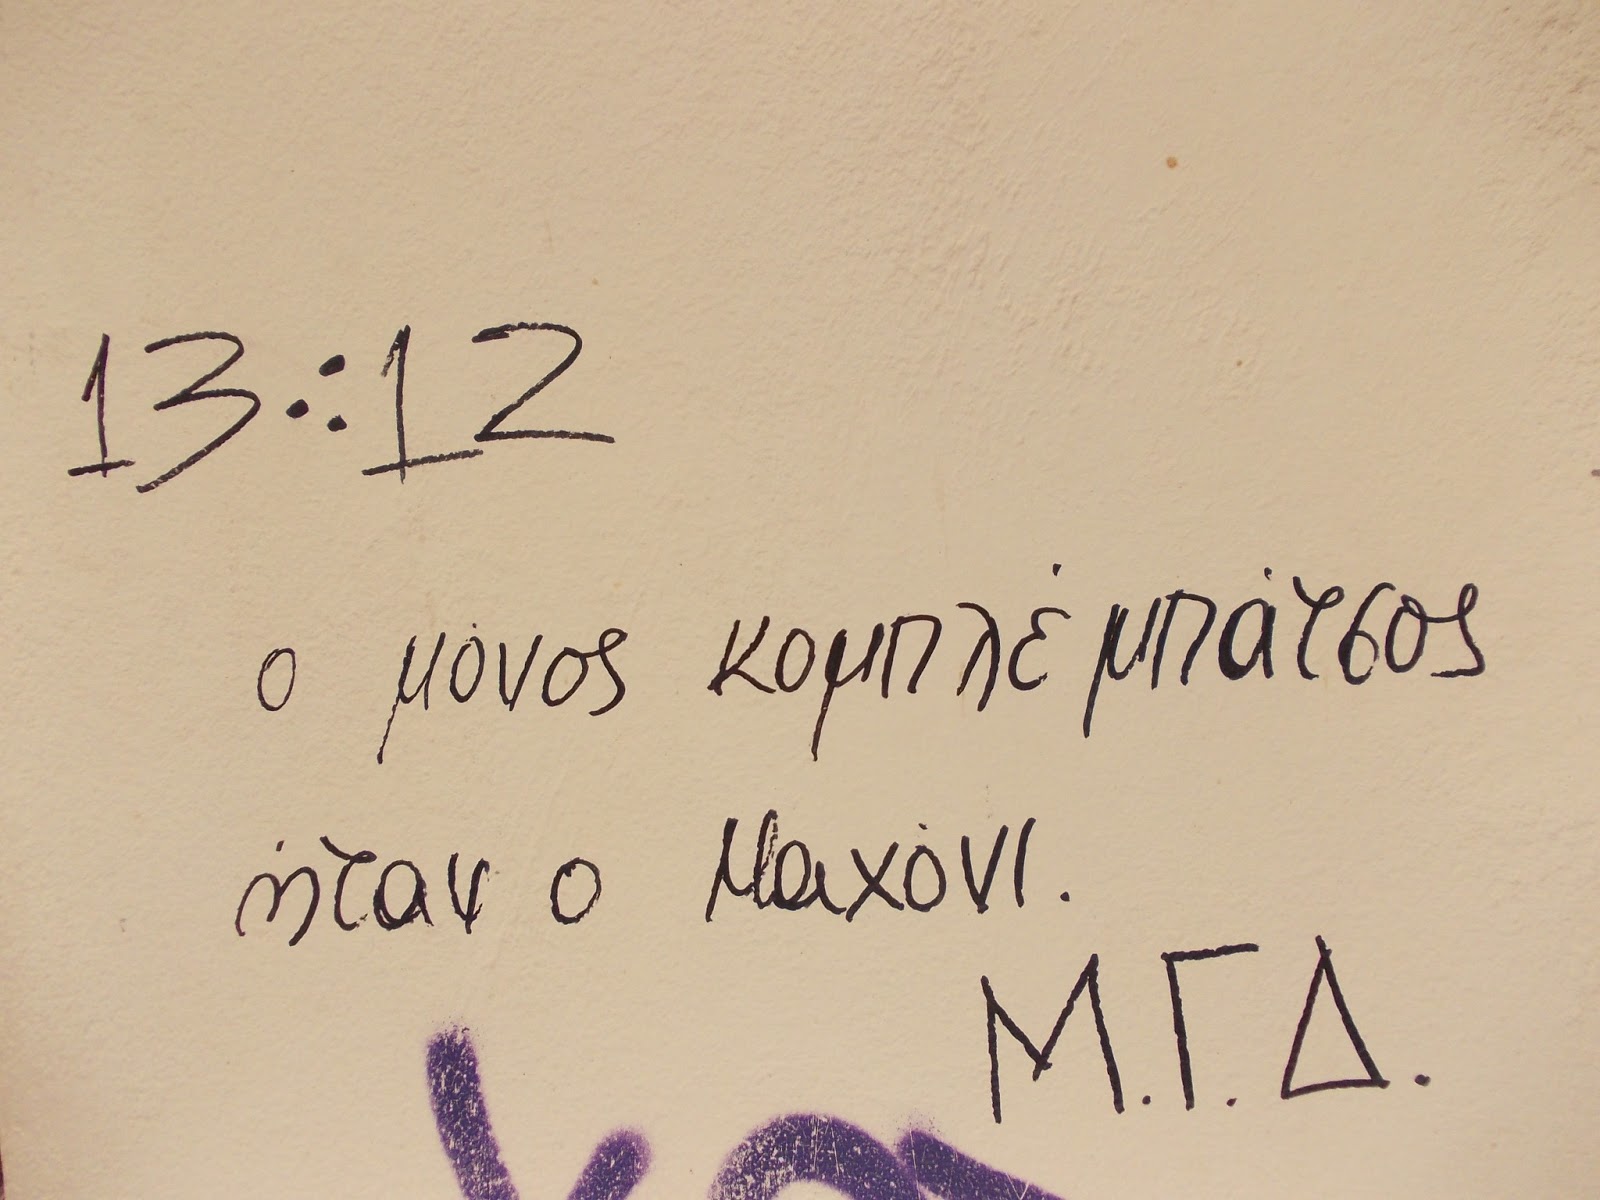 13∴12
ο μόνος κομπλέ μπάτσος
ήταν ο Μαχόνι.
Μ.Γ.Δ.